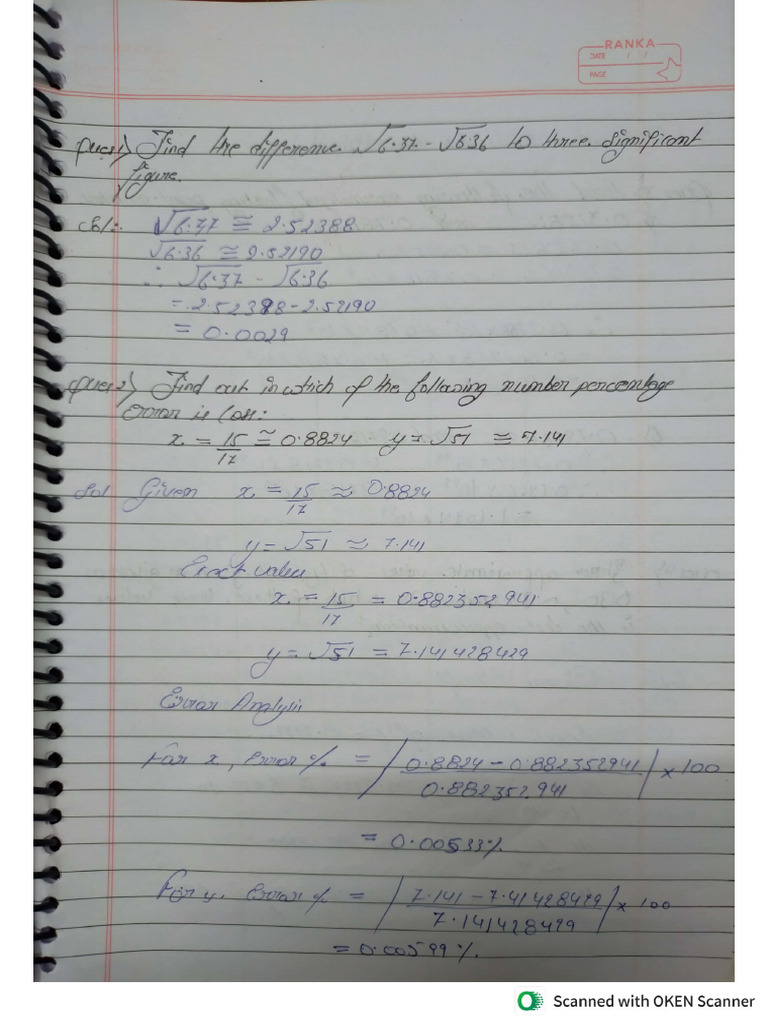 RANKA
DATE / /
PAGE
Ques1) Find the difference √6.37 - √6.36 to three significant
figure.
Sol:- √6.37 ≅ 2.52388
√6.36 ≅ 2.52190
∴ √6.37 - √6.36
= 2.52388 - 2.52190
= 0.0029
Ques2) Find out in which of the following number percentage
error is less:
x = 15/17 ≅ 0.8824 y = √51 ≅ 7.141
Sol Given x = 15/17 ≈ 0.8824
y = √51 ≈ 7.141
Exact value
x = 15/17 = 0.882352941
y = √51 = 7.141428429
Error Analysis
For x, error % = |0.8824 - 0.882352941 / 0.882352941| × 100
= 0.00533%
For y, Error % = |7.141 - 7.41428429 / 7.141428429| × 100
= 0.00599%.
Scanned with OKEN Scanner